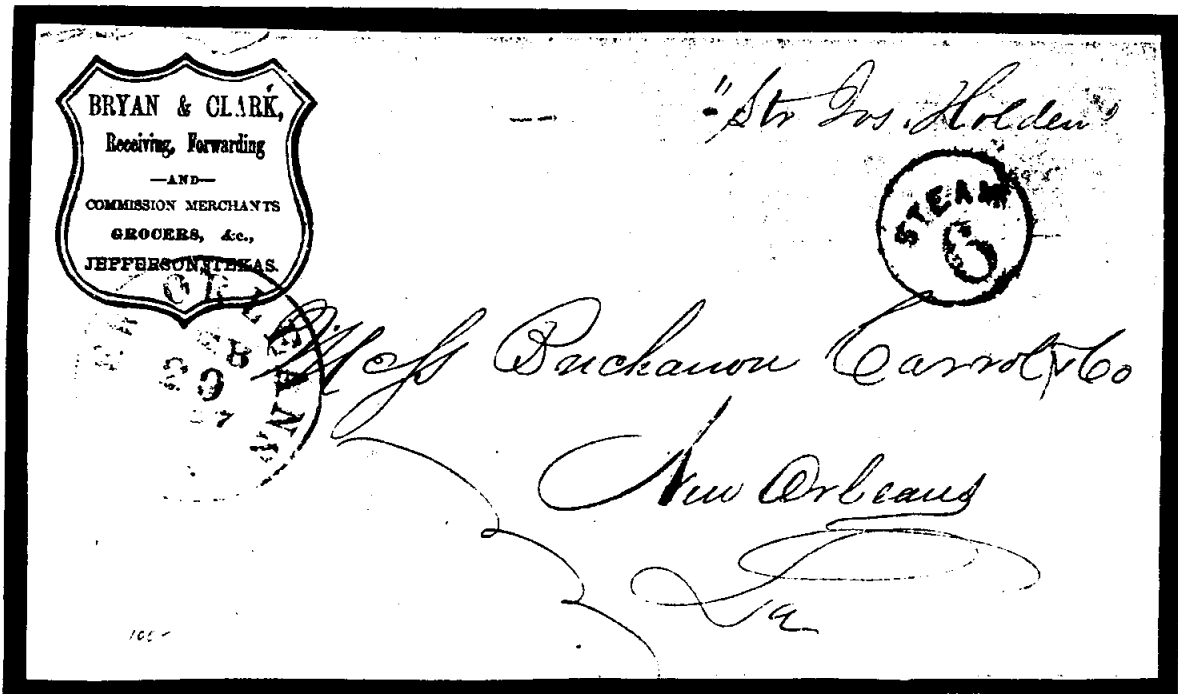 BRYAN & CLARK,
Receiving, Forwarding
—AND—
COMMISSION MERCHANTS
GROCERS, &c.,
JEFFERSON, TEXAS.
"Str Jos. Holden"
STEAM
6
ORLEANS
Mess Buchanon Carrol & Co
New Orleans
La